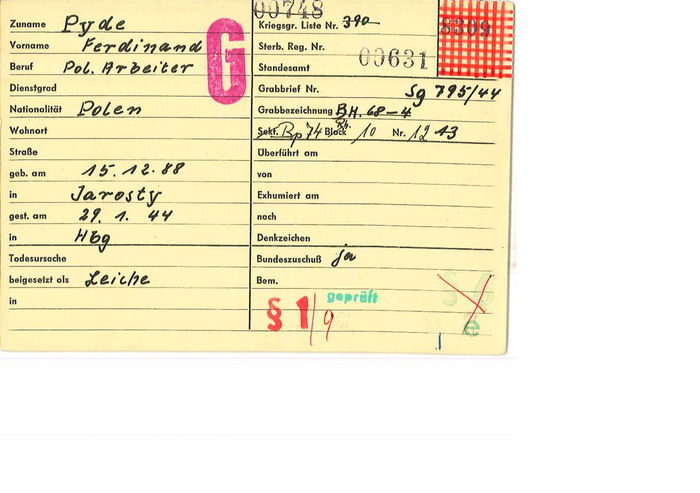 Zuname Pyde
Vorname Ferdinand
Beruf Pol. Arbeiter
Dienstgrad
Nationalität Polen
Wohnort
Straße
geb. am 15.12.88
in Jarosty
gest. am 29. 1. 44
in Hbg
Todesursache
beigesetzt als Leiche
in
G
00748
Kriegsgr. Liste Nr. 390
8309
Sterb. Reg. Nr.
00631
Standesamt
Grabbrief Nr. Sg 795/44
Grabbezeichnung BH. 68-4
Rh.
Sekt. Bp 74 Block 10 Nr. 12 13
Überführt am
von
Exhumiert am
nach
Denkzeichen
Bundeszuschuß ja
Bem.
geprüft
§ 1/9
e